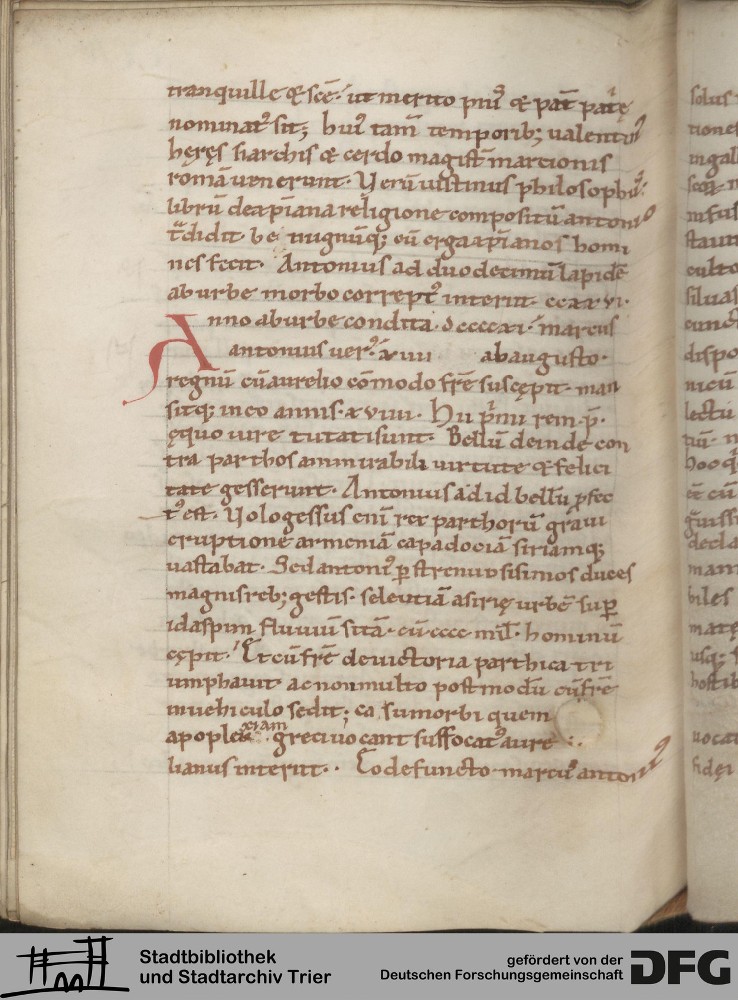 tranquille & scē. ut merito pius & pat̄ patᵉ
nominat᷒ sit; hui᷒ tam̄ temporib; valentin᷒
hęręs hiarchis & cerdo magist̄ marcionis
romā uenerunt. Uerū iustinus philosoph᷒.
librū de xp̄iana religione compositū antoni᷒
t̄didit benignūq; eū erga xp̄ianos homi
nes fecit. Antonius ad duodecimū lapidē
ab urbe morbo corrept᷒ interiit.
Anno ab urbe condita. dccccxi. marcus
antonius uer᷒. xiiii ab augusto.
regnū cū aurelio cōmodo fr̄e suscępit. man
sitq; in eo annis. xviiii. Hii p̄mi rem. p̄.
ęquo iure tutati sunt. Bellū deinde con
tra parthos ammirabili uirtute & felici
tate gesserunt. Antonius ad id bellū ꝓfec
t᷒ est. Uologessus enī rex parthorū graui
eruptione armeniā capadociā siriamq;
uastabat. Sed antoni᷒ ꝑ strenuissimos duces
magnis reb; gestis. seleutiā asirię urbē suꝑ
idaspim fluuiū sitā. cū cccc mil̄. hominū
cępit. Et cū fr̄e de uictoria parthica tri
umphauit. ac non multo post modū cū fr̄e
in uehiculo sedit; casu morbi quem
apoplexiam greci uocant suffocat᷒ aure
lianus interiit. Eo defuncto. marcus antoni᷒
solus
tiones
in gall
infus
staun
culto
siluas
cunct
dispo
nicū
lectu
decla
mam
biles
matę
usq;
hostib
uocat
fidei
Stadtbibliothek
und Stadtarchiv Trier
gefördert von der
Deutschen Forschungsgemeinschaft
DFG